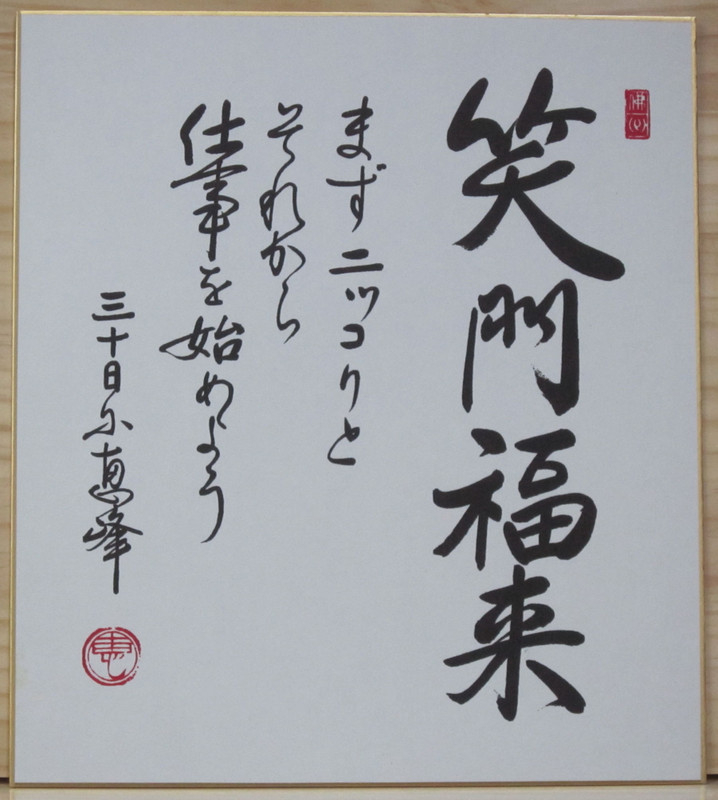 笑門福来
まずニッコリと
それから
仕事を始めよう
三十日 恵峰
佛心
恵